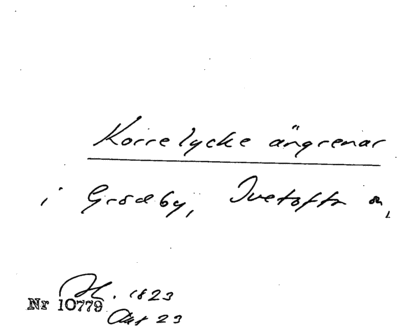 Korrelycke ängrenar
i Grödby, Ivetofta sn,
Nr 10779 . 1823
Akt 23